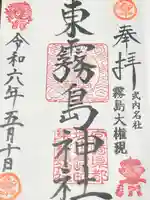 奉拝
式内名社
霧島大権現
東霧島神社
令和六年五月十日